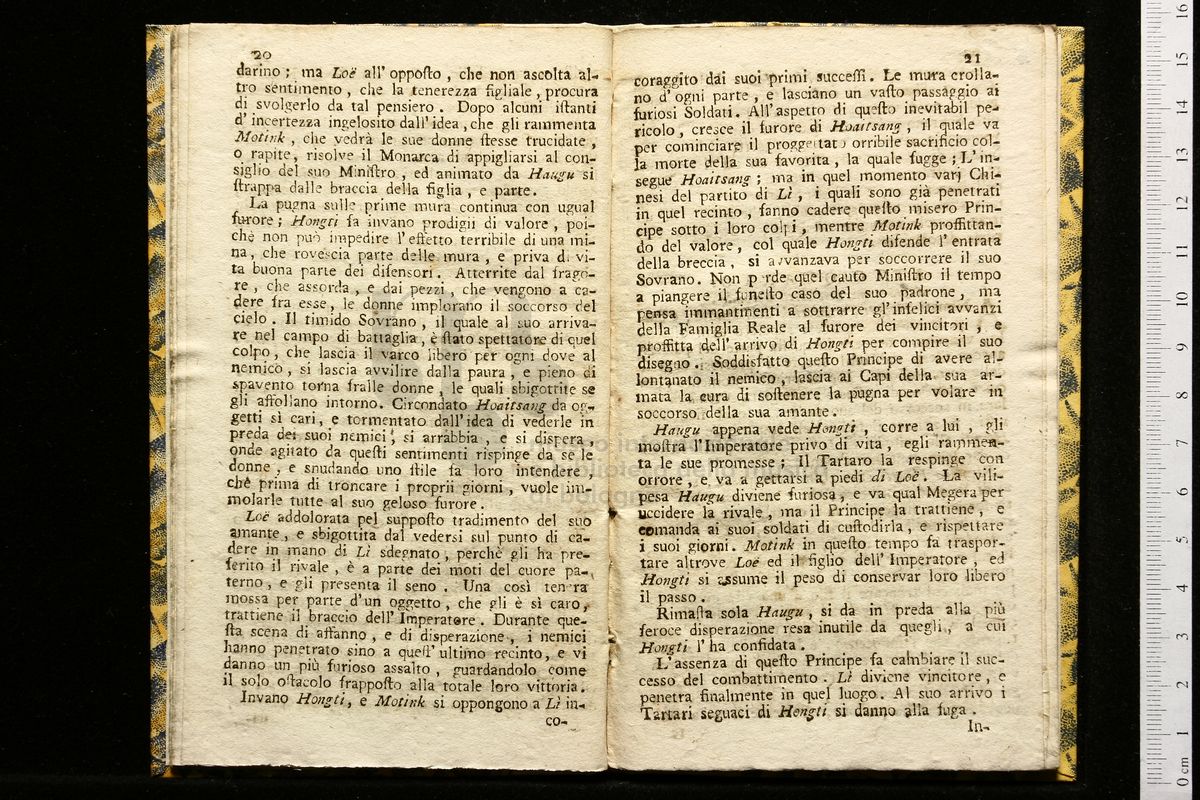 20
darino; ma Loë all' opposto, che non ascolta al-
tro sentimento, che la tenerezza figliale, procura
di svolgerlo da tal pensiero. Dopo alcuni istanti
d' incertezza ingelosito dall' idea, che gli rammenta
Motink, che vedrà le sue donne stesse trucidate,
o rapite, risolve il Monarca di appigliarsi al con-
siglio del suo Ministro, ed animato da Haugu si
strappa dalle braccia della figlia, e parte.
La pugna sulle prime mura continua con ugual
furore; Hongti fa invano prodigii di valore, poi-
chè non può impedire l' effetto terribile di una mi-
na, che rovescia parte delle mura, e priva di vi-
ta buona parte dei difensori. Atterrite dal frago-
re, che assorda, e dai pezzi, che vengono a ca-
dere fra esse, le donne implorano il soccorso del
cielo. Il timido Sovrano, il quale al suo arriva-
re nel campo di battaglia, è stato spettatore di quel
colpo, che lascia il varco libero per ogni dove al
nemico, si lascia avvilire dalla paura, e pieno di
spavento torna fralle donne, le quali sbigottite se
gli affollano intorno. Circondato Hoaitsang da og-
getti sì cari, e tormentato dall' idea di vederle in
preda dei suoi nemici, si arrabbia, e si dispera,
onde agitato da questi sentimenti rispinge da se le
donne, e snudando uno stile fa loro intendere,
chè prima di troncare i proprii giorni, vuole im-
molarle tutte al suo geloso furore.
Loë addolorata pel supposto tradimento del suo
amante, e sbigottita dal vedersi sul punto di ca-
dere in mano di Lì sdegnato, perchè gli ha pre-
ferito il rivale, è a parte dei moti del cuore pa-
terno, e gli presenta il seno. Una così tenera
mossa per parte d'un oggetto, che gli è sì caro,
trattiene il braccio dell' Imperatore. Durante que-
sta scena di affanno, e di disperazione, i nemici
hanno penetrato sino a quest' ultimo recinto, e vi
danno un più furioso assalto, guardandolo come
il solo ostacolo frapposto alla totale loro vittoria.
Invano Hongti, e Motink si oppongono a Lì in-
co-
21
coraggito dai suoi primi successi. Le mura crolla-
no d' ogni parte, e lasciano un vasto passaggio ai
furiosi Soldati. All' aspetto di questo inevitabil pe-
ricolo, cresce il furore di Hoaitsang, il quale va
per cominciare il proggettato orribile sacrificio col-
la morte della sua favorita, la quale fugge; L' in-
segue Hoaitsang; ma in quel momento varj Chi-
nesi del partito di Lì, i quali sono già penetrati
in quel recinto, fanno cadere questo misero Prin-
cipe sotto i loro colpi, mentre Motink proffittan-
do del valore, col quale Hongti difende l' entrata
della breccia, si avvanzava per soccorrere il suo
Sovrano. Non perde quel cauto Ministro il tempo
a piangere il funesto caso del suo padrone, ma
pensa immantinenti a sottrarre gl' infelici avvanzi
della Famiglia Reale al furore dei vincitori, e
proffitta dell' arrivo di Hongti per compire il suo
disegno. Soddisfatto questo Principe di avere al-
lontanato il nemico, lascia ai Capi della sua ar-
mata la cura di sostenere la pugna per volare in
soccorso della sua amante.
Haugu appena vede Hongti, corre a lui, gli
mostra l'Imperatore privo di vita, egli rammen-
ta le sue promesse; Il Tartaro la respinge con
orrore, e va a gettarsi a piedi di Loë. La vili-
pesa Haugu diviene furiosa, e va qual Megera per
uccidere la rivale, ma il Principe la trattiene, e
comanda ai suoi soldati di custodirla, e rispettare
i suoi giorni. Motink in questo tempo fa traspor-
tare altrove Loë ed il figlio dell' Imperatore, ed
Hongti si assume il peso di conservar loro libero
il passo.
Rimasta sola Haugu, si da in preda alla più
feroce disperazione resa inutile da quegli, a cui
Hongti l' ha confidata.
L' assenza di questo Principe fa cambiare il suc-
cesso del combattimento. Lì diviene vincitore, e
penetra finalmente in quel luogo. Al suo arrivo i
Tartari seguaci di Hongti si danno alla fuga.
In-
0 cm 1 2 3 4 5 6 7 8 9 10 11 12 13 14 15 16